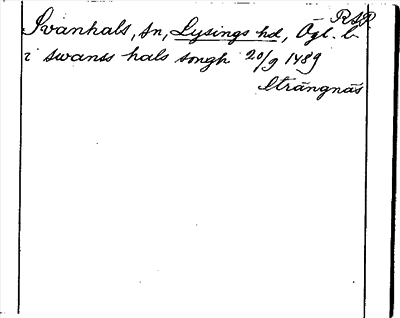 RAP
Svanhals, sn, Lysings hd, Ögl. l.
i swanss hals songh 20/9 1489
Strängnäs